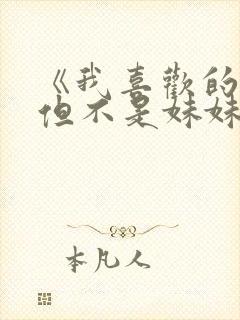 《我喜歡的
但不是妹妹
本凡人